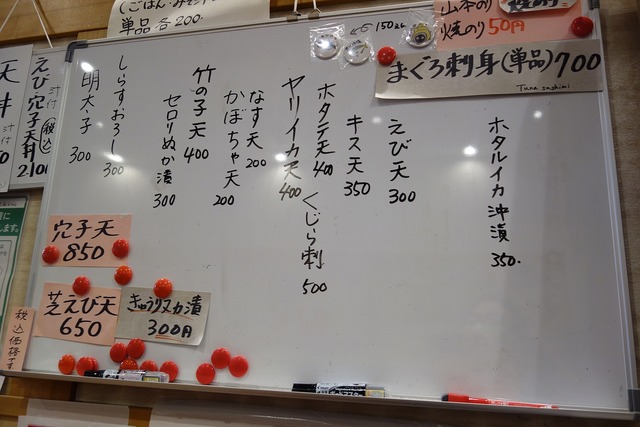 山本のり
焼のり50円
←150えん
まぐろ刺身(単品)700
Tuna sashimi
ホタルイカ沖漬 350.
えび天 300
キス天 350
ホタテ天 400
くじら刺 500
ヤリイカ天 400
なす天 200
かぼちゃ天 200
竹の子天 400
セロリぬか漬 300
しらすおろし 300
明太子 300
単品各200.
えび穴子天丼 2,100
汁付
税込
天丼
汁付
穴子天
850
芝えび天
650
きゅうりヌカ漬
300円
税込価格です